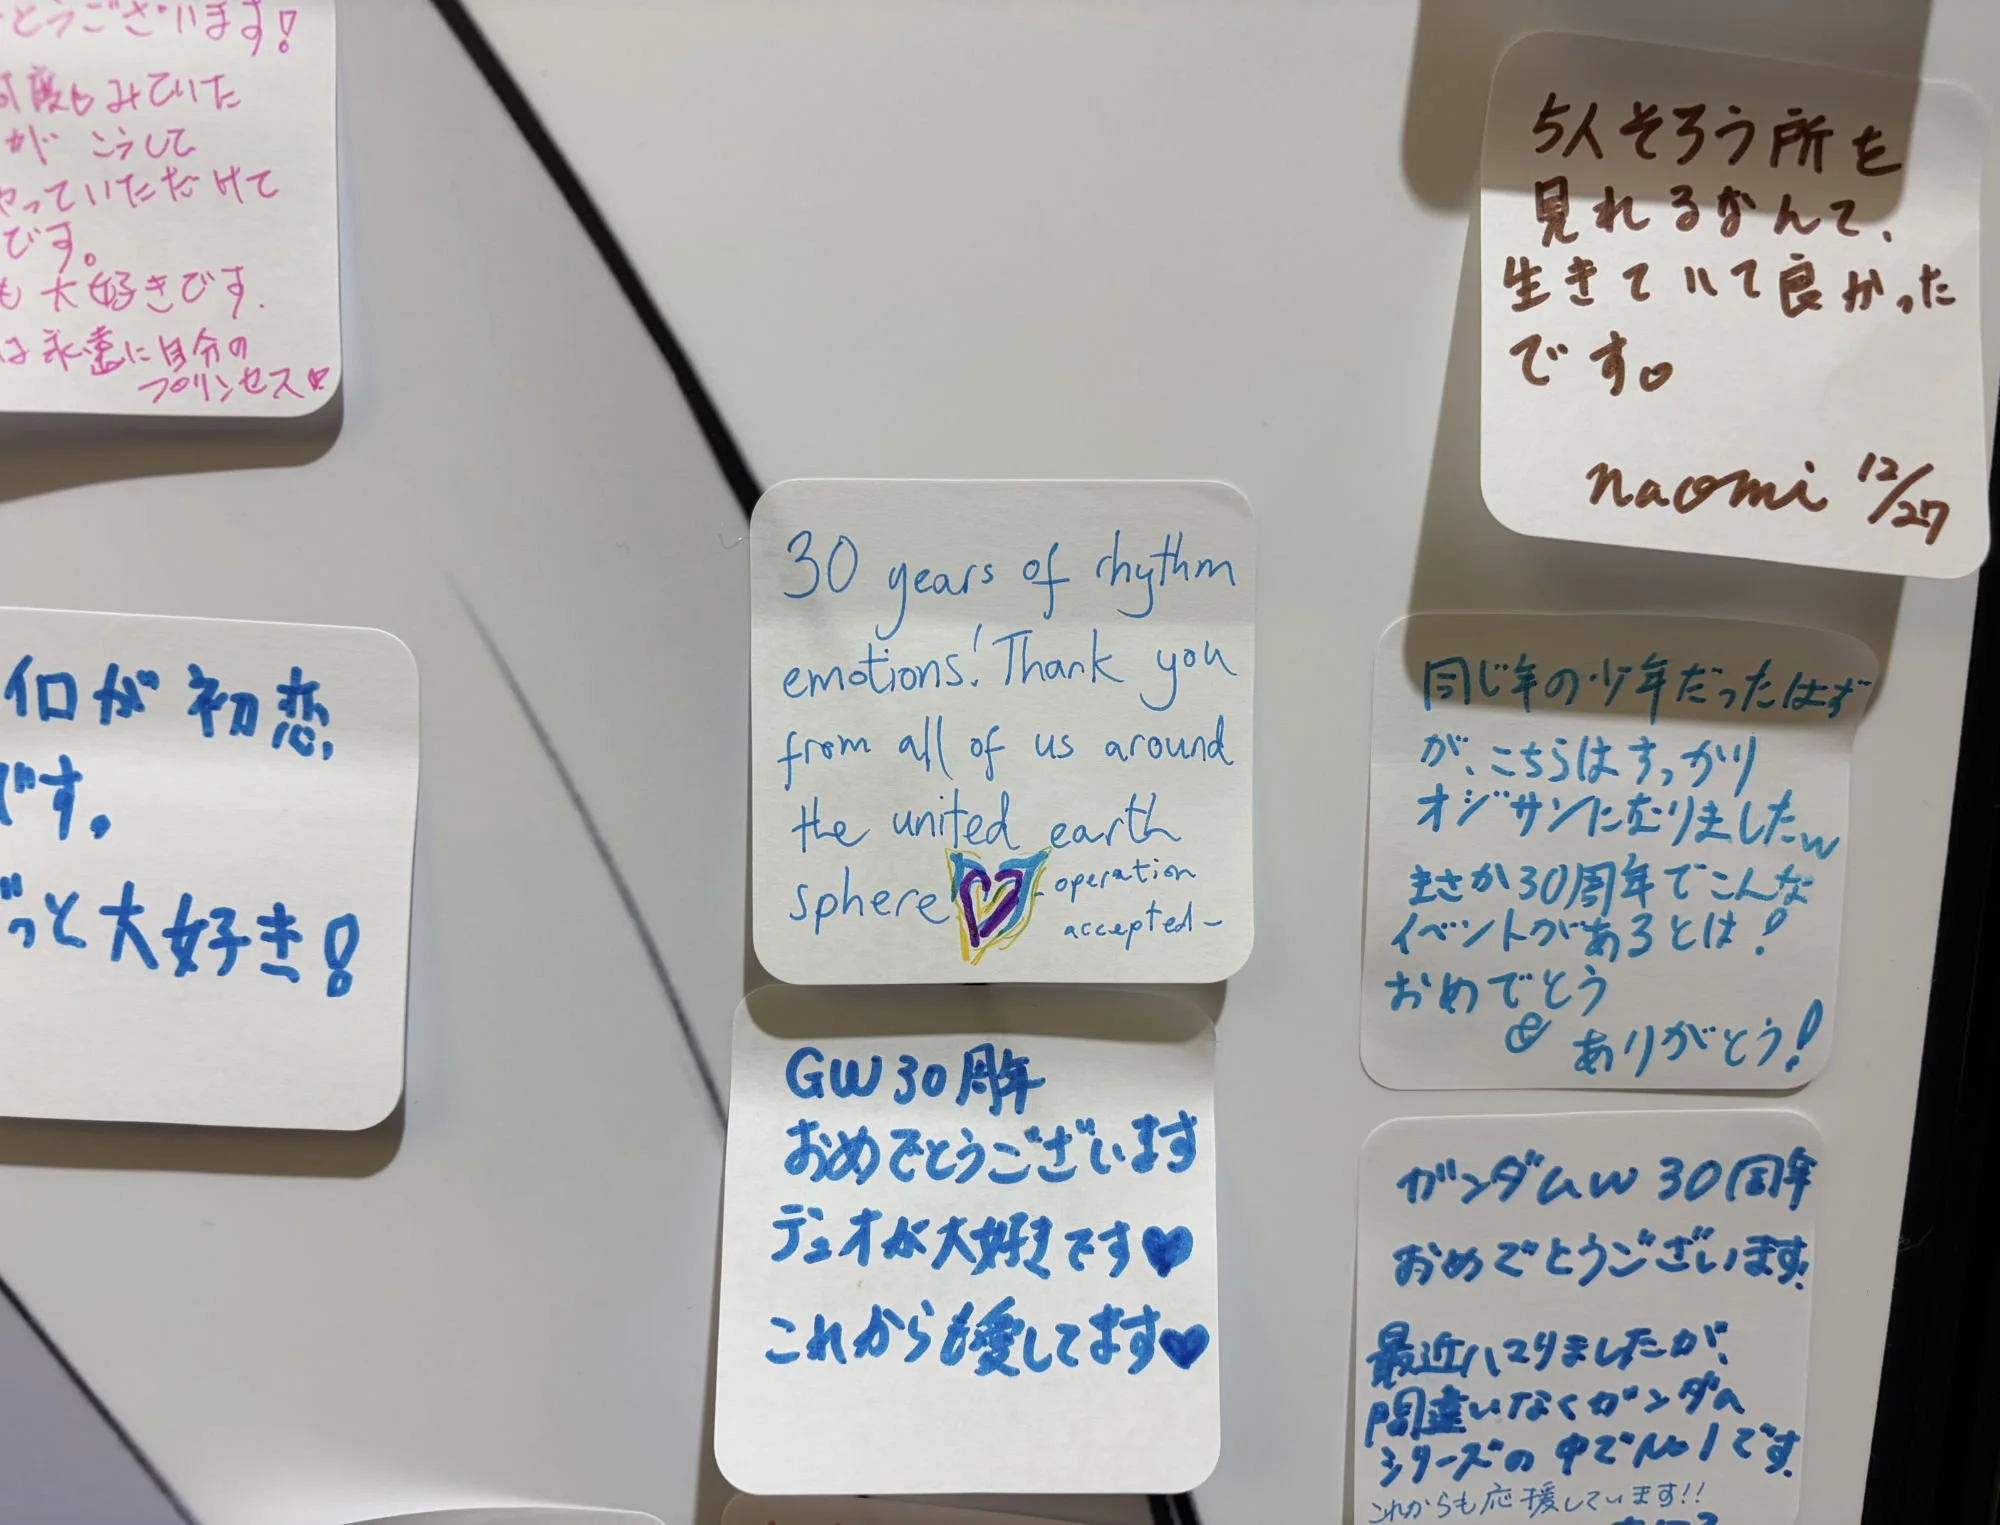 とうございます!
度もみていた
が こうして
やっていただけて
です。
も大好きです.
は永遠に自分の
プリンセス♥
イロが初恋
です。
ずっと大好き!
30 years of rhythm
emotions! Thank you
from all of us around
the united earth
sphere
-operation
accepted-
GW30周年
おめでとうございます
デュオが大好きです♥
これからも愛してます♥
5人そろう所を
見れるなんて、
生きていて良かった
です。
naomi 12/27
同じ年の少年だったはず
が、こちらはすっかり
オジサンになりましたw
まさか30周年でこんな
イベントがあるとは!
おめでとう
&
ありがとう!
ガンダムW 30周年
おめでとうございます!
最近ハマりましたが、
間違いなくガンダム
シリーズの中でNo1です
これからも応援しています!!